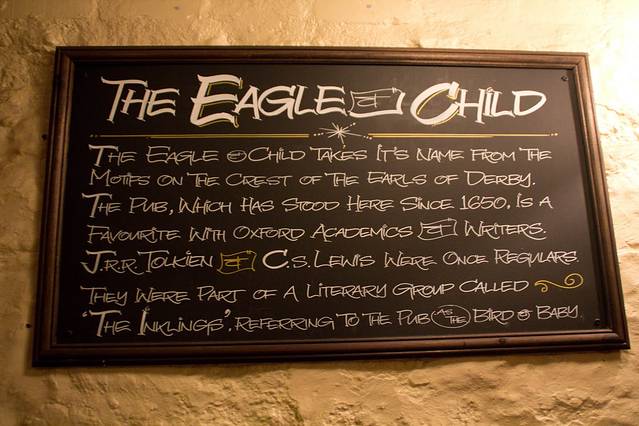 The Eagle & Child
The Eagle & Child takes it's name from the
motifs on the crest of the Earls of Derby.
The pub, which has stood here since 1650, is a
favourite with Oxford academics & writers.
J.R.R. Tolkien & C.S. Lewis were once regulars.
They were part of a literary group called
'The Inklings', referring to the pub as the Bird & Baby.